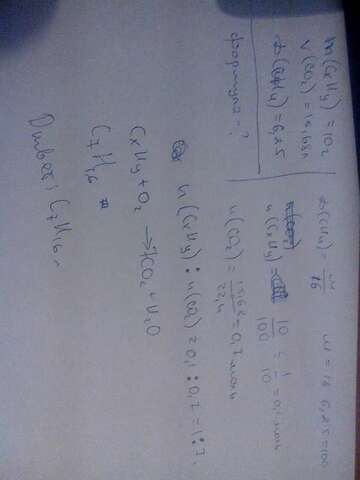 m(CxHy) = 10г
V(CO2) = 15,68л
D(CH4) = 6,25
формула - ?
D(CH4) = M/16
M = 16 · 6,25 = 100
n(CxHy) = 10/100 = 1/10 = 0,1 моль
n(CO2) = 15,68/22,4 = 0,7 моль
n(CxHy) : n(CO2) = 0,1 : 0,7 = 1 : 7
CxHy + O2 → 7CO2 + H2O
C7H16
Ответ: C7H16